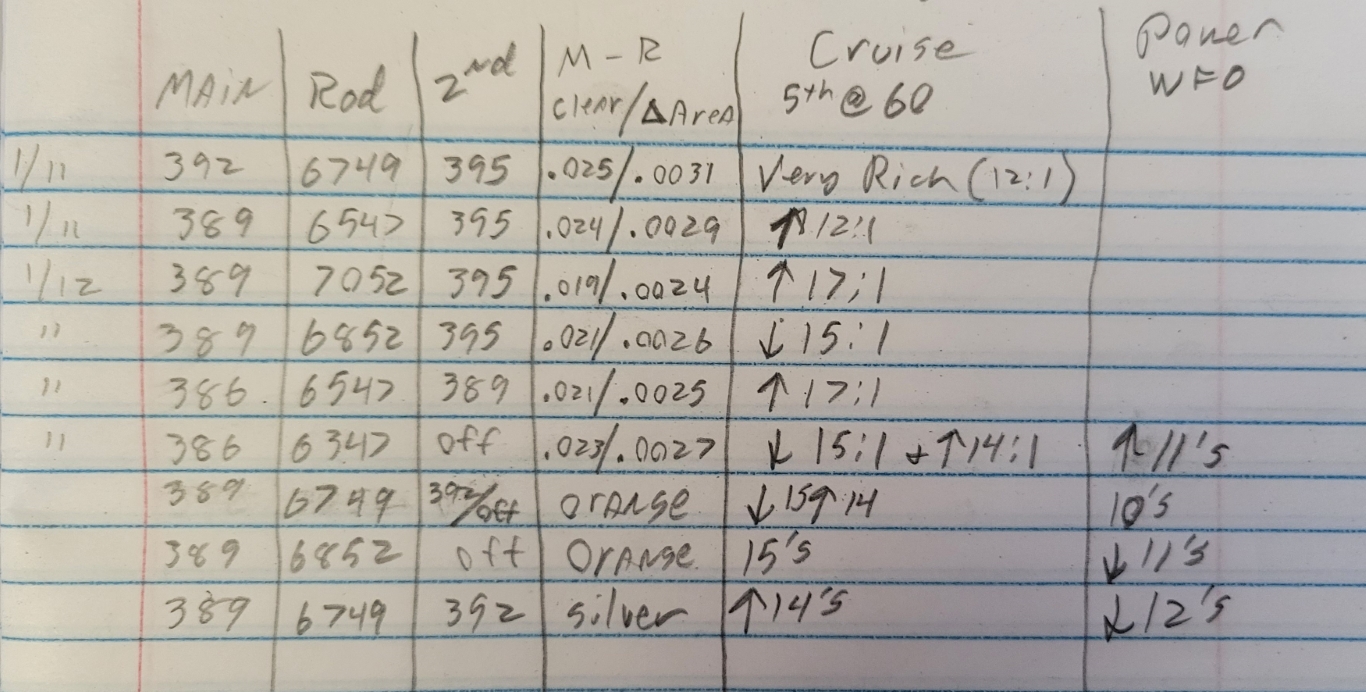 MAIN Rod 2nd M-R Clear/ΔArea Cruise 5th @ 60 Power WFO
1/11 392 6749 395 .025/.0031 Very Rich (12:1)
1/11 389 6547 395 .024/.0029 ↑12:1
1/12 389 7052 395 .019/.0024 ↑17:1
" 389 6852 395 .021/.0026 ↓15:1
" 386 6547 389 .021/.0025 ↑17:1
" 386 6347 off .023/.0027 ↓15:1 + ↑14:1 ↑11's
389 6749 392/off orange ↓15↑14 10's
389 6852 off orange 15's ↓11's
389 6749 392 silver ↑14's ↓12's